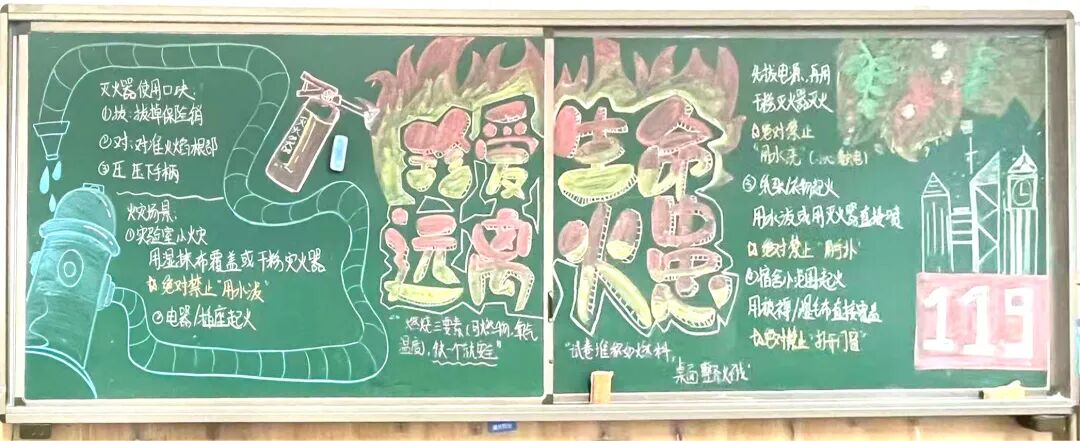 灭火器使用口诀:
①拔:拔掉保险销
②对:对准火焰根部
③压 压下手柄
火灾场景:
①实验室小火灾
用湿抹布覆盖或干粉灭火器
绝对禁止"用水泼"
②电器/插座起火
灭火器
珍爱生命
远离火患
"燃烧三要素(可燃物,氧气
温度),缺一个就安全"
先拔电源,再用
干粉灭火器灭火
绝对禁止
"用水浇"
③纸张/衣物起火
用水泼或用灭火器直接喷
绝对禁止"用手扑"
④宿舍小范围起火
用被褥/湿毛布直接覆盖
绝对禁止"打开门窗"
"试卷堆积如燃料
桌面整
119